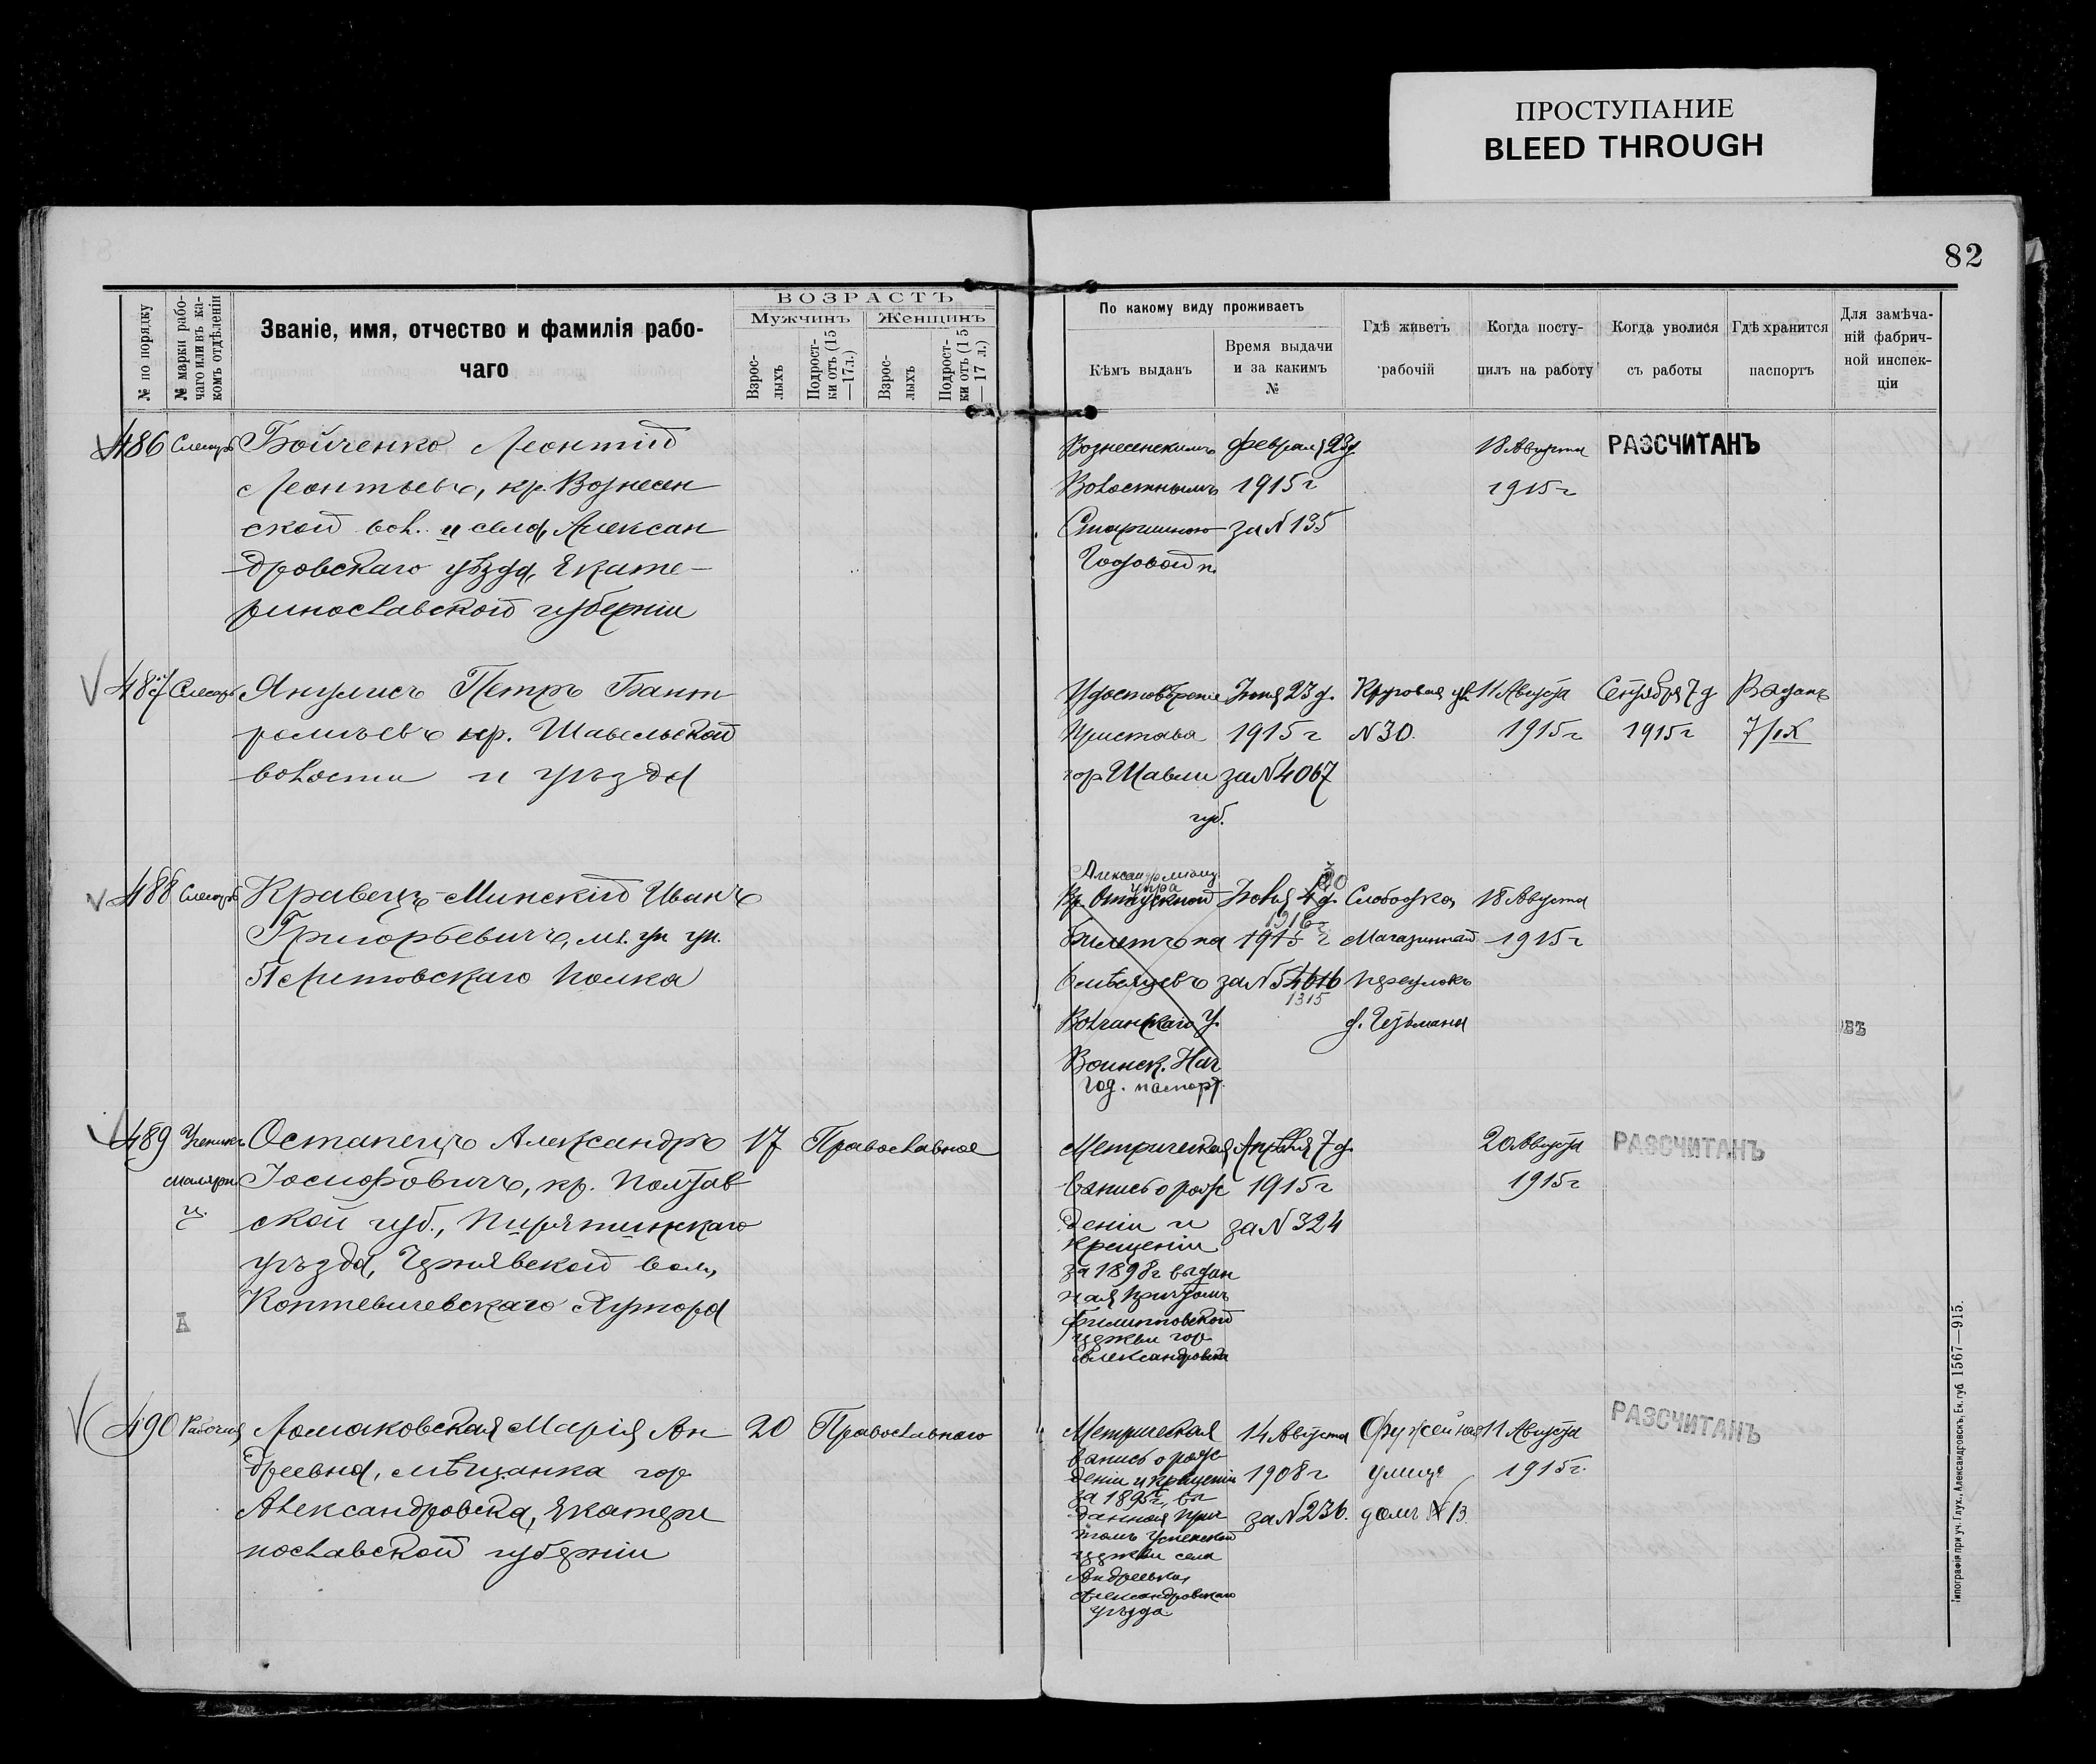 ПРОСТУПАНИЕ
BLEED THROUGH
82
№ по порядку
№ марки рабо-
чаго или въ ка-
комъ отдѣленіи
Званіе, имя, отчество и фамилія рабо-
чаго
ВОЗРАСТЪ
Мужчинъ
Женщинъ
Взрос-
лыхъ
Подрост-
ки отъ (15
—17 л.)
Взрос-
лыхъ
Подрост-
ки отъ (15
—17 л.)
По какому виду проживаетъ
Кѣмъ выданъ
Время выдачи
и за какимъ
№
Гдѣ живетъ
рабочій
Когда посту-
пилъ на работу
Когда уволися
съ работы
Гдѣ хранится
паспортъ
Для замѣча-
ній фабрич-
ной инспек-
ціи
486 Слесарь Бойченко Леонтій
Леонтьевъ, кр. Вознесен
ской вол. и села, Алексан
дровскаго уѣзда, Екате-
ринославской губерніи
Вознесенскимъ
Волостнымъ
Старшиною
Годовой п.
Февраля 23 д.
1915 г
за № 135
18 Августа
1915 г
РАЗСЧИТАНЪ
487 Слесарь Янулисъ Петръ
кр. Шавельской
волости и уѣзда
Удостовѣреніе
Пристава
гор. Шавли
губ.
23 д.
1915 г
за № 4067
Круговая ул.
№ 30.
11 Августа
1915 г
Сентября 7 д
1915 г
Выданъ
7/IX
488 Слесарь Кравецъ-Минскій Иванъ
Григорьевичъ,
51 Литовскаго полка
упра
Отпускной
Билетъ
Волчанскаго У.
Воинск. Нач
год. паспорт.
20
1916 г
1915 г
за №
1315
Слободка,
Магазинный
переулокъ
д. Гезьмана
18 Августа
1915 г
ОВЪ
489 Ученикъ
маляри.
ц.
Остапецъ Александръ
Іосифовичъ, кр. Полтав
ской губ., Пирятинскаго
уѣзда, Чернявской вол.,
Коптевичевскаго Хутора
17 Православное
А
Метрическая
запись о рож
деніи и
крещеніи
за 1898 г выдан
ная Причтомъ
Филипповской
церкви гор
Александровска
Апрѣля 7 д.
1915 г
за № 324
20 Августа
1915 г
РАЗСЧИТАНЪ
490 Рабочая Ломаковская Марія Ан
дреевна, мѣщанка гор
Александровска, Екатери
нославской губерніи
20 Православнаго
Метрическая
запись о рож
деніи и крещеніи
за 1895 г., вы
данная Прич
томъ Успенской
церкви села
Андреевка,
Александровскаго
уѣзда
14 Августа
1908 г
за № 236.
улица
домъ № 13
11 Августа
1915 г.
РАЗСЧИТАНЪ
Типографія при уч. Глух., Александровскъ, Ек. губ. 1567—915.